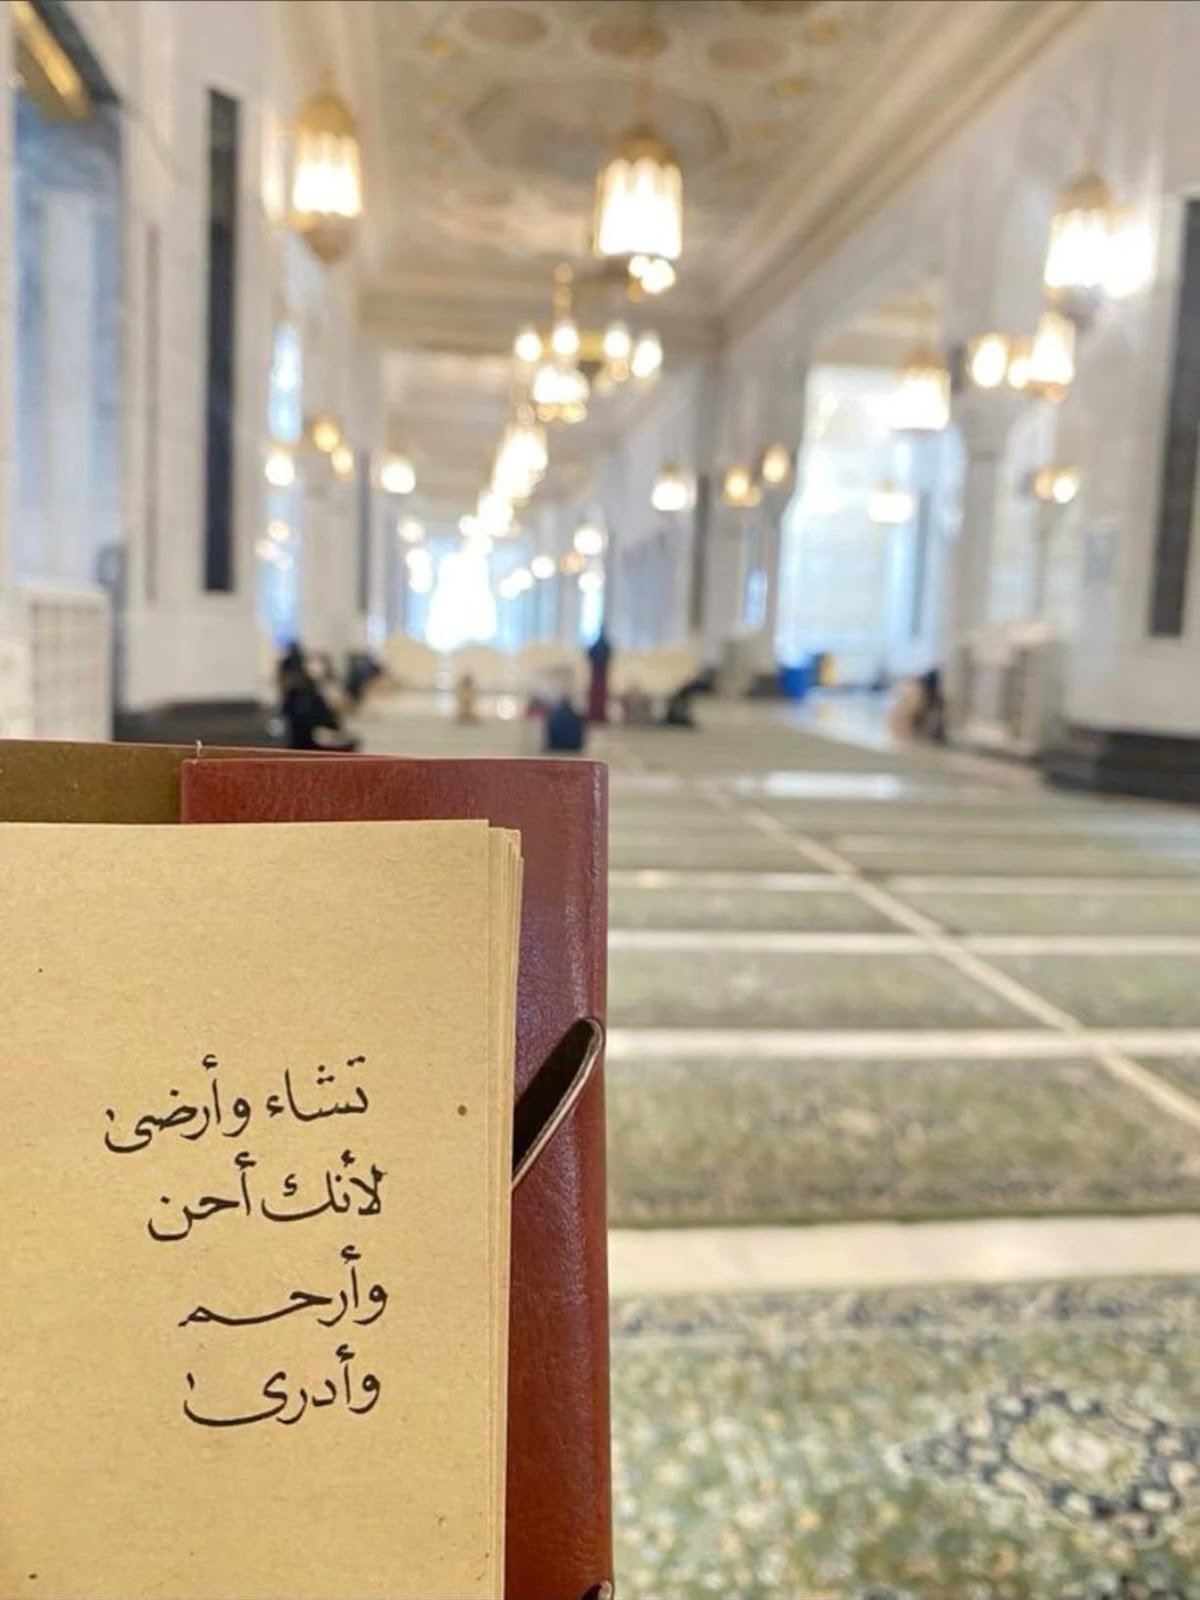 تشاء وأرضىٰ
لأنك أحن
وأرحم
وأدرىٰ